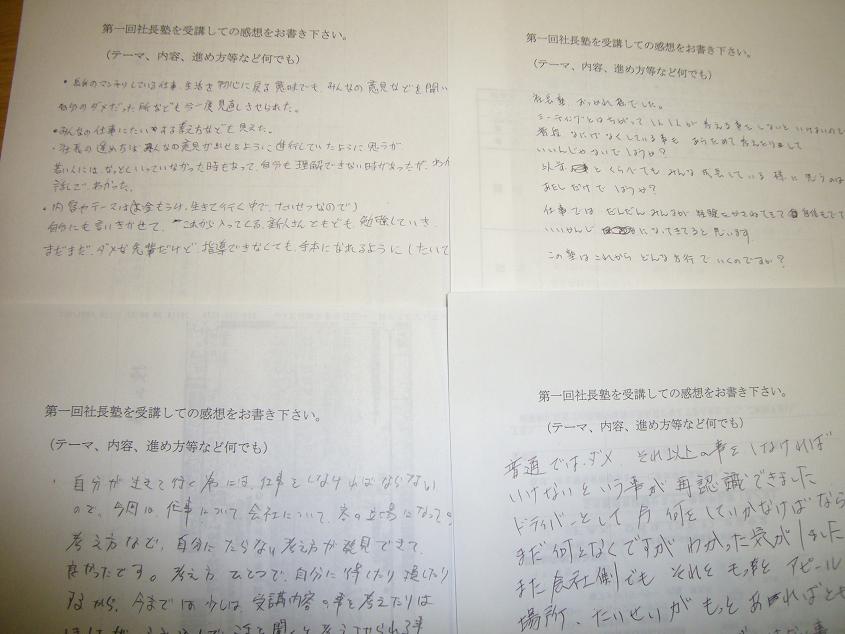 第一回社長塾を受講しての感想をお書き下さい。
(テーマ、内容、進め方等など何でも)
・長年のマンネリしている仕事、生活を初心に戻る意味でも、みんなの意見などを聞い
自分のダメだった所なども今一度見直しさせられた。
・みんなの仕事にたいする考え方なども見えた。
・社長の進め方は、みんなの意見が出せるように進行していたように思うが
若い人には、なっとくいっていなかった時もあって、自分も理解できない時があったが、わか
話して、わかった。
・内容やテーマは(お金もうけ、生きて行く中で、たいせつなので)
自分にも言いきかせて、これから入ってくる、新人さんともども、勉強していき、
まだまだ、ダメな先輩だけど、指導できなくても、手本になれるように(したいで
第一回社長塾を受講しての感想をお書き下さい。
(テーマ、内容、進め方等など何でも)
社長塾 おつかれ様でした。
ミーティングとはちがって 1人1人が考える事をしないといけないので
普段 なにげなくしている事も あらためて考えたりして
いいんじゃないでしょうか?
以前 とくらべても みんな成長している様に思うのは
あたしだけでしょうか?
仕事では だんだんみんなが経験かさねてきて 自信もでて
いいかんじ になってきてると思います。
この塾はこれから どんな方行でいくのですか?
第一回社長塾を受講しての感想をお書き下さい。
(テーマ、内容、進め方等など何でも)
・自分が生きて行く為には、仕事をしなければならない
ので、今回は、仕事について、会社について、客の立場になっての
考え方など、自分にたらない考え方が発見できて、
良かったです。考え方 ひとつで、自分に得したり損したり
するから、今までは少しは、受講内容の事を考えたりは
第一回社長塾を受講しての感想をお書き下さい。
(テーマ、内容、進め方等など何でも)
普通では、ダメ それ以上の事をしなければ
いけないという事が再認識できました
ドライバーとして 今 何をしていかなければなら
まだ何となくですが わかった気がしました
また会社側でも それをもっとアピール
場所、たいせいがもっとあればとも